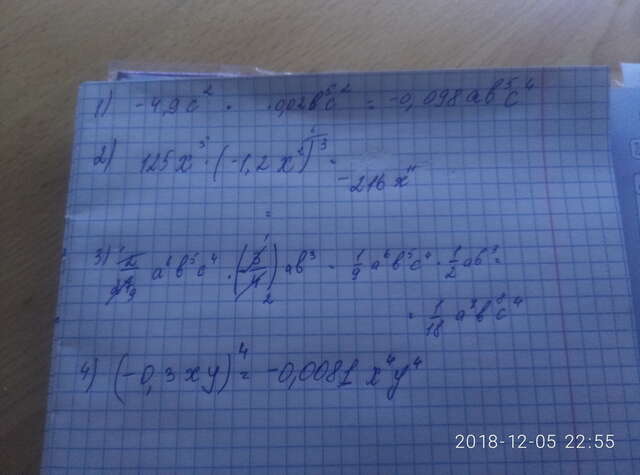 1) -4,9c² · ·0,02b⁵c² = -0,098ab⁵c⁴
2) 125x³ · (-1,2x²)³ =
-216x
=
3) a⁶b⁵c⁴ · (-3/4) ab³ = 1/9 a⁶b⁵c⁴ · 1/2 ab³ =
= 1/18 a⁷b⁸c⁴
4) (-0,3xy)⁴ = -0,0081 x⁴y⁴
2018-12-05 22:55